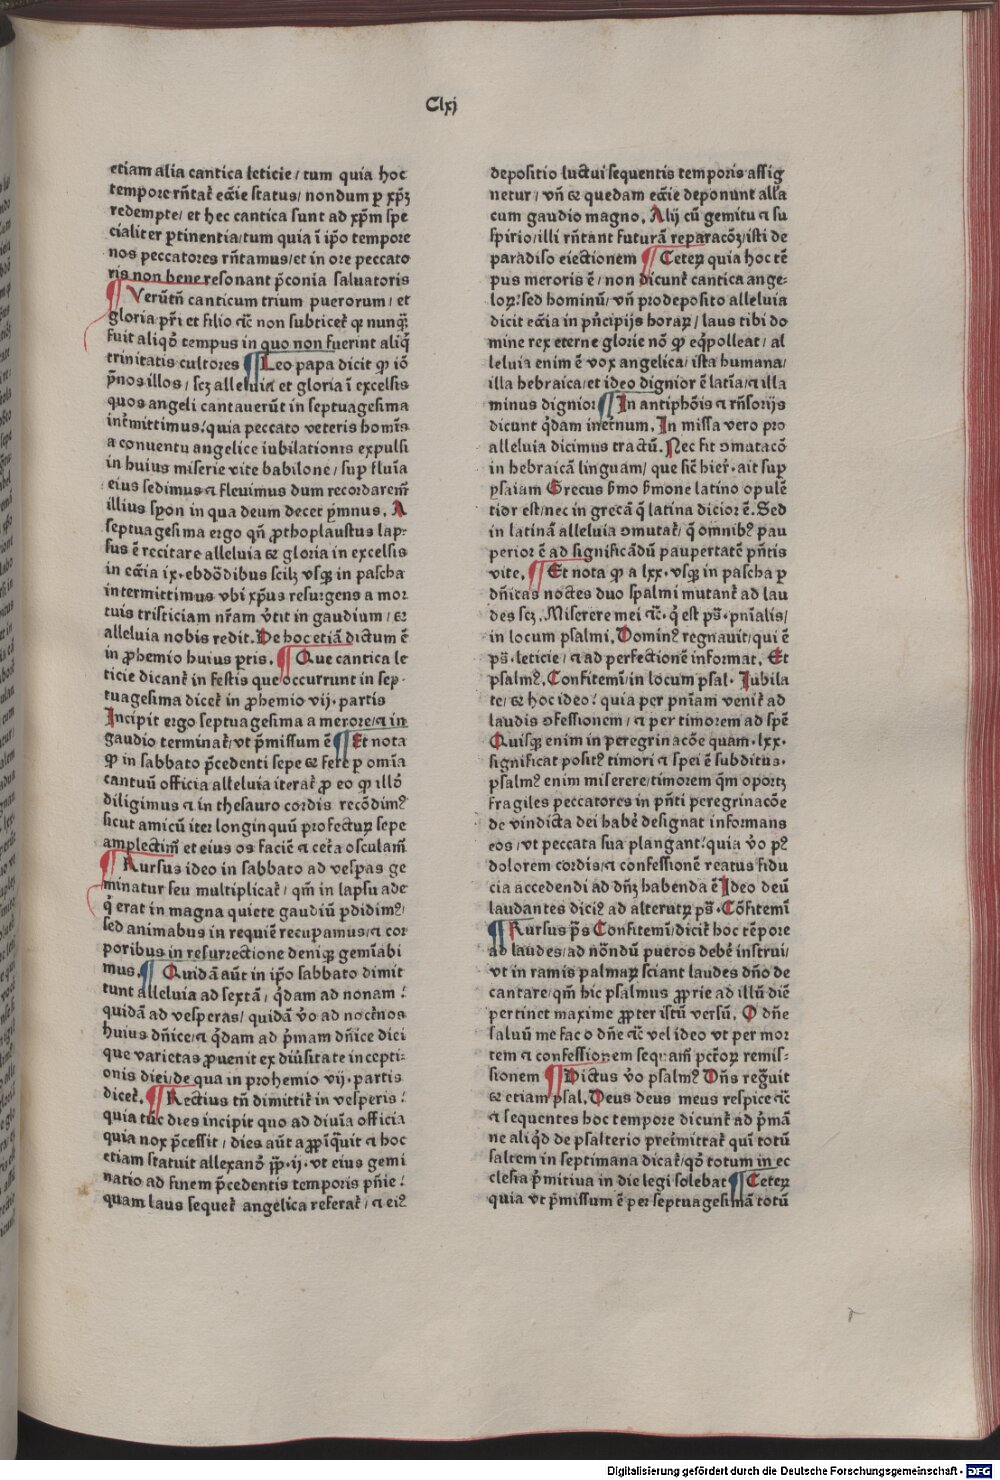 Clxj
etiam alia cantica leticie / tum quia hoc
tempore rñtat᷑ ecc̃ie status / nondum p xp̃ʒ
redempte / et hec cantica sunt ad xp̃m spe
cialiter ꝑtinentia / tum quia ĩ ip̃o tempore
nos peccatores rñtamus / et in ore peccato
ris non bene resonant p̃conia saluatoris
¶ Verũtñ canticum trium puerorum / et
gloria pr̃i et filio ⁊c̃ non subticet᷑ qꝫ nunq̃ꝫ
fuit aliqd̓ tempus in quo non fuerint aliq̃
trinitatis cultores ¶ Leo papa dicit ꝙ iõ
p̃nos illos / scʒ alleluia et gloria ĩ excelsis
quos angeli cantauerũt in septuagesima
int᷑mittimus / quia peccato veteris homĩs
a conuentu angelice iubilationis expulsi
in huius miserie vite babilone / sup fluĩa
eius sedimus ⁊ fleuimus dum recordarem̃
illius syon in qua deum decet ẏmnus. A
septuagesima ergo qñ ꝓthoplaustus lap-
sus ẽ recitare alleluia ⁊ gloria in excelsis
in ecc̃ia ix. ebdõdibus scilʒ vsqꝫ in pascha
intermittimus vbi xp̃us resurgens a mor
tuis tristiciam nr̃am v̓tit in gaudium / ⁊
alleluia nobis redit. De hoc etiã dictum ẽ
in ꝓhemio huius ꝑtis. ¶ Que cantica le
ticie dicant᷑ in festis que occurrunt in sep-
tuagesima dicet᷑ in ꝓhemio vij. partis
Incipit ergo septuagesima a merore / ⁊ in
gaudio terminat᷑ / vt p̃missum ẽ ¶ Et nota
ꝙ in sabbato p̃cedenti sepe ⁊ fere p om̃ia
cantuũ officia alleluia iterat᷑ ꝓ eo ꝙ illõ
diligimus ⁊ in thesauro cordis recõdimꝰ
sicut amicũ iter longinquũ profecturꝫ sepe
amplectim̃ et eius os faciẽ ⁊ cet᷑a osculam̃
¶ Rursus ideo in sabbato ad vespas ge
minatur seu multiplicat᷑ / qm̃ in lapsu ade
q̓ erat in magna quiete gaudiũ ꝑdidimꝰ
sed animabus in requiẽ recupamus / ⁊ cor
poribus in resurrectione deniqꝫ gemĩabi
mus. ¶ Quidã aũt in ip̃o sabbato dimit
tunt alleluia ad sextã / q̓dam ad nonam :
quidã ad vesperas / quidã v̓o ad noct᷑nos
huius dñice / ⁊ q̓dam ad p̓mam dñice dici
que varietas ꝓuenit ex diũsitate incepti-
onis diei / de qua in prohemio vij. partis
dicet᷑. ¶ Rectius tñ dimittit᷑ in vesperis :
quia tũc dies incipit quo ad diuĩa officia
quia nox p̃cessit / dies aũt aꝓpĩq̃uit ⁊ hoc
etiam statuit allexandʼ pp̃. ij. vt eius gemi
natio ad finem p̃cedentis temporis p̃ñie :
quam laus sequet᷑ angelica referat᷑ / ⁊ eiꝰ
depositio luctui sequentis temporis assig
netur / vñ ⁊ quedam ecc̃ie deponunt all̃a
cum gaudio magno. Alij cũ gemitu ⁊ su
spirio / illi rñtant futurã reparacõʒ / isti de
paradiso eiectionem ¶ Ceterꝫ quia hoc tẽ
pus meroris ẽ / non dicunt᷑ cantica ange-
loꝝ : sed hominũ / vñ pro deposito alleluia
dicit ecc̃ia in p̓ncipijs horaꝝ / laus tibi do
mine rex eterne glorie nõ ꝙ eq̓polleat / al
leluia enim ẽ vox angelica / ista humana /
illa hebraica / et ideo dignior ẽ latĩa / ⁊ illa
minus dignior ¶ In antiphõis ⁊ rñsorijs
dicunt q̓dam inet᷑num. In missa vero pro
alleluia dicimus tractũ. Nec fit ꝯmutacõ
in hebraicã linguam / que sic̃ hierʼ. ait sup
ysaiam Grecus b̓mo b̓mone latino opulẽ
tior est / nec in grecã q̃ latina dicior ẽ. Sed
in latinã alleluia ꝯmutat᷑ / q̃ om̃nibꝰ pau
perior ẽ ad significãdũ paupertatẽ p̃ñtis
vite. ¶ Et nota ꝙ a lxx. vsqꝫ in pascha p
dñicas noctes duo psalmi mutant᷑ ad lau
des scʒ. Miserere mei ⁊c̃. q̓ est ps̃. pnĩalis /
in locum psalmi. Dominꝰ regnauit / qui ẽ
ps̃. leticie / ⁊ ad perfectionẽ informat. Et
psalmꝰ. Confitemĩ / in locum psal. Jubila
te / ⁊ hoc ideo : quia per pnĩam venit᷑ ad
laudis ꝯfessionem / ⁊ per timorem ad spẽ
Quisqꝫ enim in peregrinacõe quam. lxx.
significat positꝰ timori ⁊ spei ẽ subditus.
psalmꝰ enim miserere / timorem q̃m oportʒ
fragiles peccatores in p̃ñti peregrinacõe
de vindicta dei habẽ designat informans
eos / vt peccata sua plangant / quia v̓o pꝰ
dolorem cordis / ⁊ confessionẽ reatus fidu
cia accedendi ad dñʒ habenda ẽ Ideo deũ
laudantes diciꝰ ad alterutrꝫ ps̃. Cõfitemĩ
¶ Rursus p̃s Confitemĩ / dicit᷑ hoc tẽpore
ad laudes / ad nõndũ pueros debẽ instrui /
vt in ramis palmaꝝ sciant laudes dño de
cantare / qm̃ hic psalmus ꝓprie ad illũ diẽ
pertinet maxime ꝓpter istũ versũ. O dñe
saluũ me fac o dñe ⁊c̃ vel ideo vt per mor
tem ⁊ confessionem sequam̃ pct᷑oꝝ remis-
sionem ¶ Dictus v̓o psalmꝰ Dñs reg̃uit
⁊ etiam psal. Deus deus meus respice ⁊c̃
⁊ sequentes hoc tempore dicunt᷑ ad p̓mã
ne aliq̓d de psalterio pret᷑mittat᷑ quĩ totũ
saltem in septimana dicat᷑ / qd̓ totum in ec
clesia p̓mitiua in die legi solebat ¶ Ceterꝫ
quia vt p̃missum ẽ per septuagesimã totũ
Digitalisierung gefördert durch die Deutsche Forschungsgemeinschaft - DFG